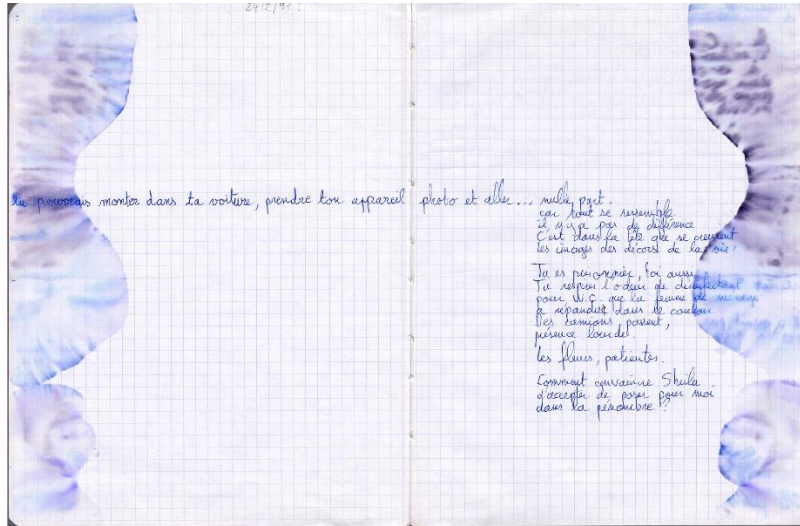 24/2/91 :
tu pourrais monter dans ta voiture, prendre ton appareil photo et aller... nulle part.
car tout se ressemble
il n'y a pas de différence
C'est dans la tête que se creusent
les images des décors de la vie.
Tu es prisonnier, toi aussi
Tu respires l'odeur de désinfectant
pour W.C. que la femme de ménage
a répandue dans le couloir
Des camions passent,
présence lourde.
Les fleurs, patientes.
Comment convaincre Sheila
d'accepter de poser pour moi
dans la pénombre ?